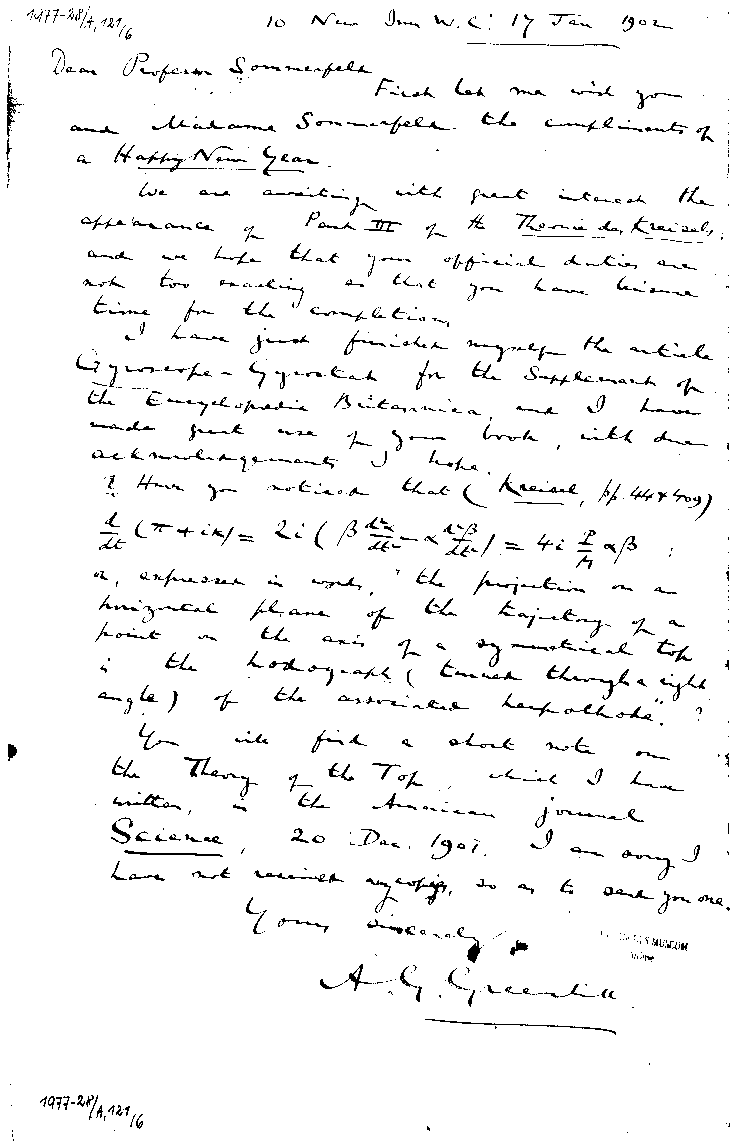 1977-28/A,121/6
10 New Inn W.C. 17 Jan 1902
Dear Professor Sommerfeld
First let me wish you
and Madame Sommerfeld the compliments of
a Happy New Year.
We are awaiting with great interest the
appearance of Part III of the Theorie des Kreisels,
and we hope that your official duties are
not too exacting so that you have leisure
time for the completion.
I have just finished myself the article
Gyroscope & Gyrostat for the Supplement of
the Encyclopaedia Britannica, and I have
made great use of your book, with due
acknowledgements I hope.
? Have you noticed that (Kreisel, pp. 44 & 409)
d/dt (π + iκ) = 2i (β d²α/dt² − α d²β/dt²) = 4i P/A αβ ;
or, expressed in words, "the projection on a
horizontal plane of the trajectory of a
point on the axis of a symmetrical top
is the hodograph (turned through a right
angle) of the associated herpolhode". ?
You will find a short note on
the Theory of the Top, which I have
written, in the American journal
Science, 20 Dec. 1901. I am sorry I
have not received my copies, so as to send you one.
Yours sincerely
A. G. Greenhill
MUSEUM
1977-28/A,121/6